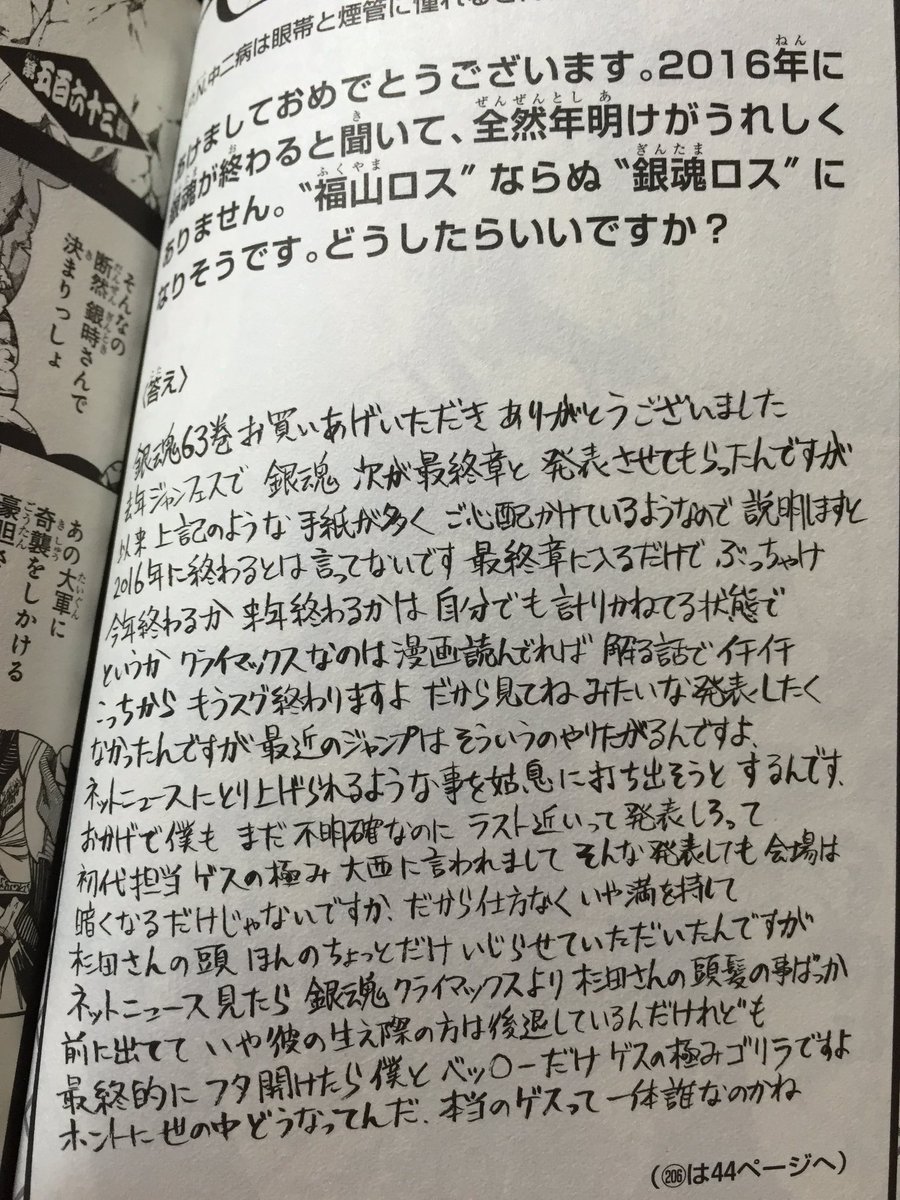 P.N.中二病は眼帯と煙管に憧れる
あけましておめでとうございます。2016年に
銀魂が終わると聞いて、全然年明けがうれしく
ありません。“福山ロス”ならぬ“銀魂ロス”に
なりそうです。どうしたらいいですか?
〈答え〉
銀魂63巻 お買いあげいただき ありがとうございました
去年ジャンフェスで 銀魂 次が最終章と 発表させてもらったんですが
以来 上記のような 手紙が多く ご心配かけているようなので 説明しますと
2016年に終わるとは言ってないです 最終章に入るだけで ぶっちゃけ
今年終わるか 来年終わるかは 自分でも計りかねてる状態で
というか クライマックスなのは漫画読んでれば 解る話でイチイチ
こっちから もうスグ終わりますよ だから見てね みたいな発表したく
なかったんですが 最近のジャンプは そういうのやりたがるんですよ、
ネットニュースにとり上げられるような事を姑息に打ち出そうと するんです、
おかげで僕も まだ 不明確なのに ラスト近いって 発表しろって
初代担当 ゲスの極み 大西に言われまして そんな発表しても 会場は
暗くなるだけじゃないですか、だから仕方なく いや満を持して
杉田さんの頭 ほんのちょっとだけ いじらせていただいたんですが
ネットニュース見たら 銀魂クライマックスより 杉田さんの頭髪の事ばっか
前に出てて いや彼の生え際の方は後退しているんだけれども
最終的に フタ開けたら 僕と ベッ〇ーだけ ゲスの極みゴリラですよ
ホントに世の中どうなってんだ、本当のゲスって 一体誰なのかね
(206は44ページへ)
第五百六十三
そんなの
断然 銀時さんで
決まりっしょ
あの大軍に
奇襲をしかける
豪胆さ